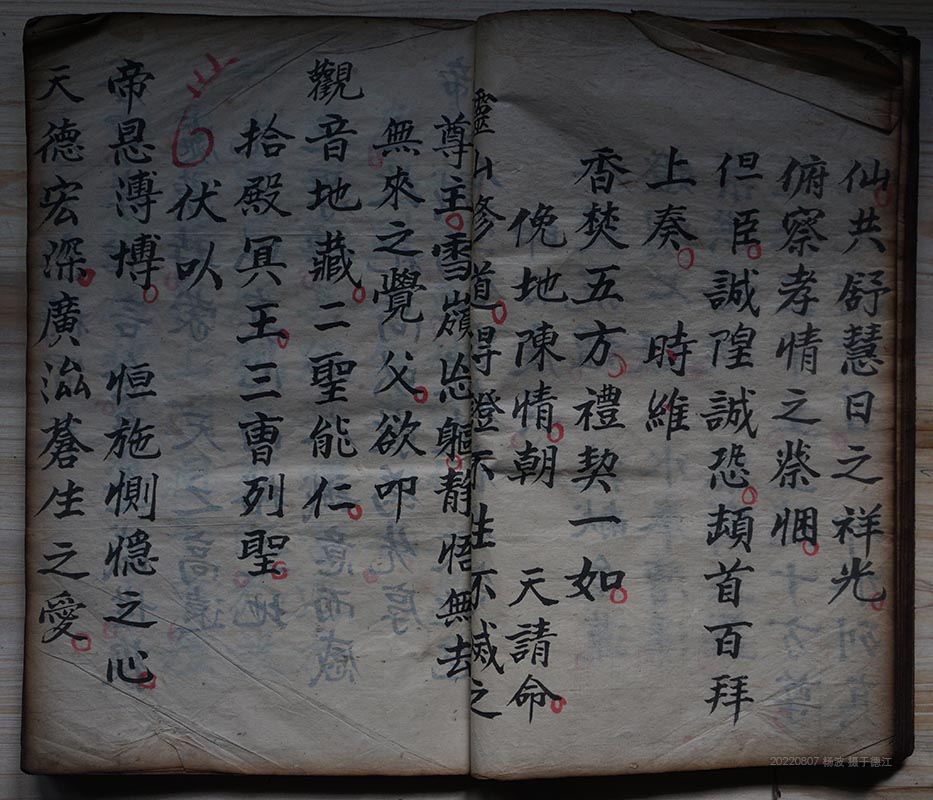 仙共舒慧日之祥光
俯察孝情之悃
但臣誠隍誠恐頓首百拜
上奏 時維
香焚五方禮契一如
俛地陳情朝 天請命
靈山修道得證不生不滅之
尊主雪嶺忘軀靜悟無去
無來之覺父欲叩
觀音地藏二聖能仁
拾殿冥王三曹列聖
伏以
帝恩溥博 恒施惻隱之心
天德宏深廣滋蒼生之愛
20220807 杨波 摄于德江